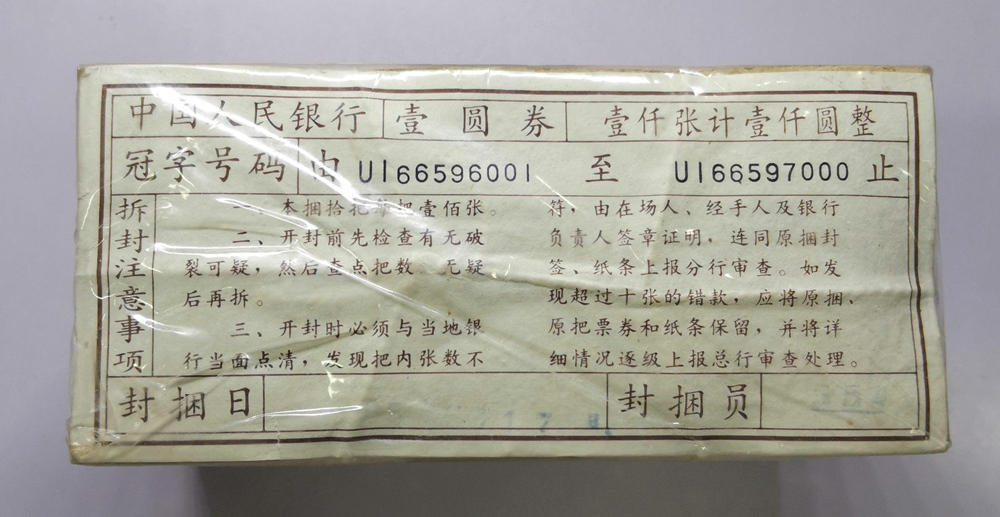 中国人民银行 壹圆券 壹仟张计壹仟圆整
冠字号码 由 UI66596001 至 UI66597000 止
拆封注意事项
一、本捆拾把每把壹佰张。
二、开封前先检查有无破
裂可疑，然后查点把数 无疑
后再拆。
三、开封时必须与当地银
行当面点清，发现把内张数不
符，由在场人、经手人及银行
负责人签章证明，连同原捆封
签、纸条上报分行审查。如发
现超过十张的错款，应将原捆、
原把票券和纸条保留，并将详
细情况逐级上报总行审查处理。
封捆日
封捆员